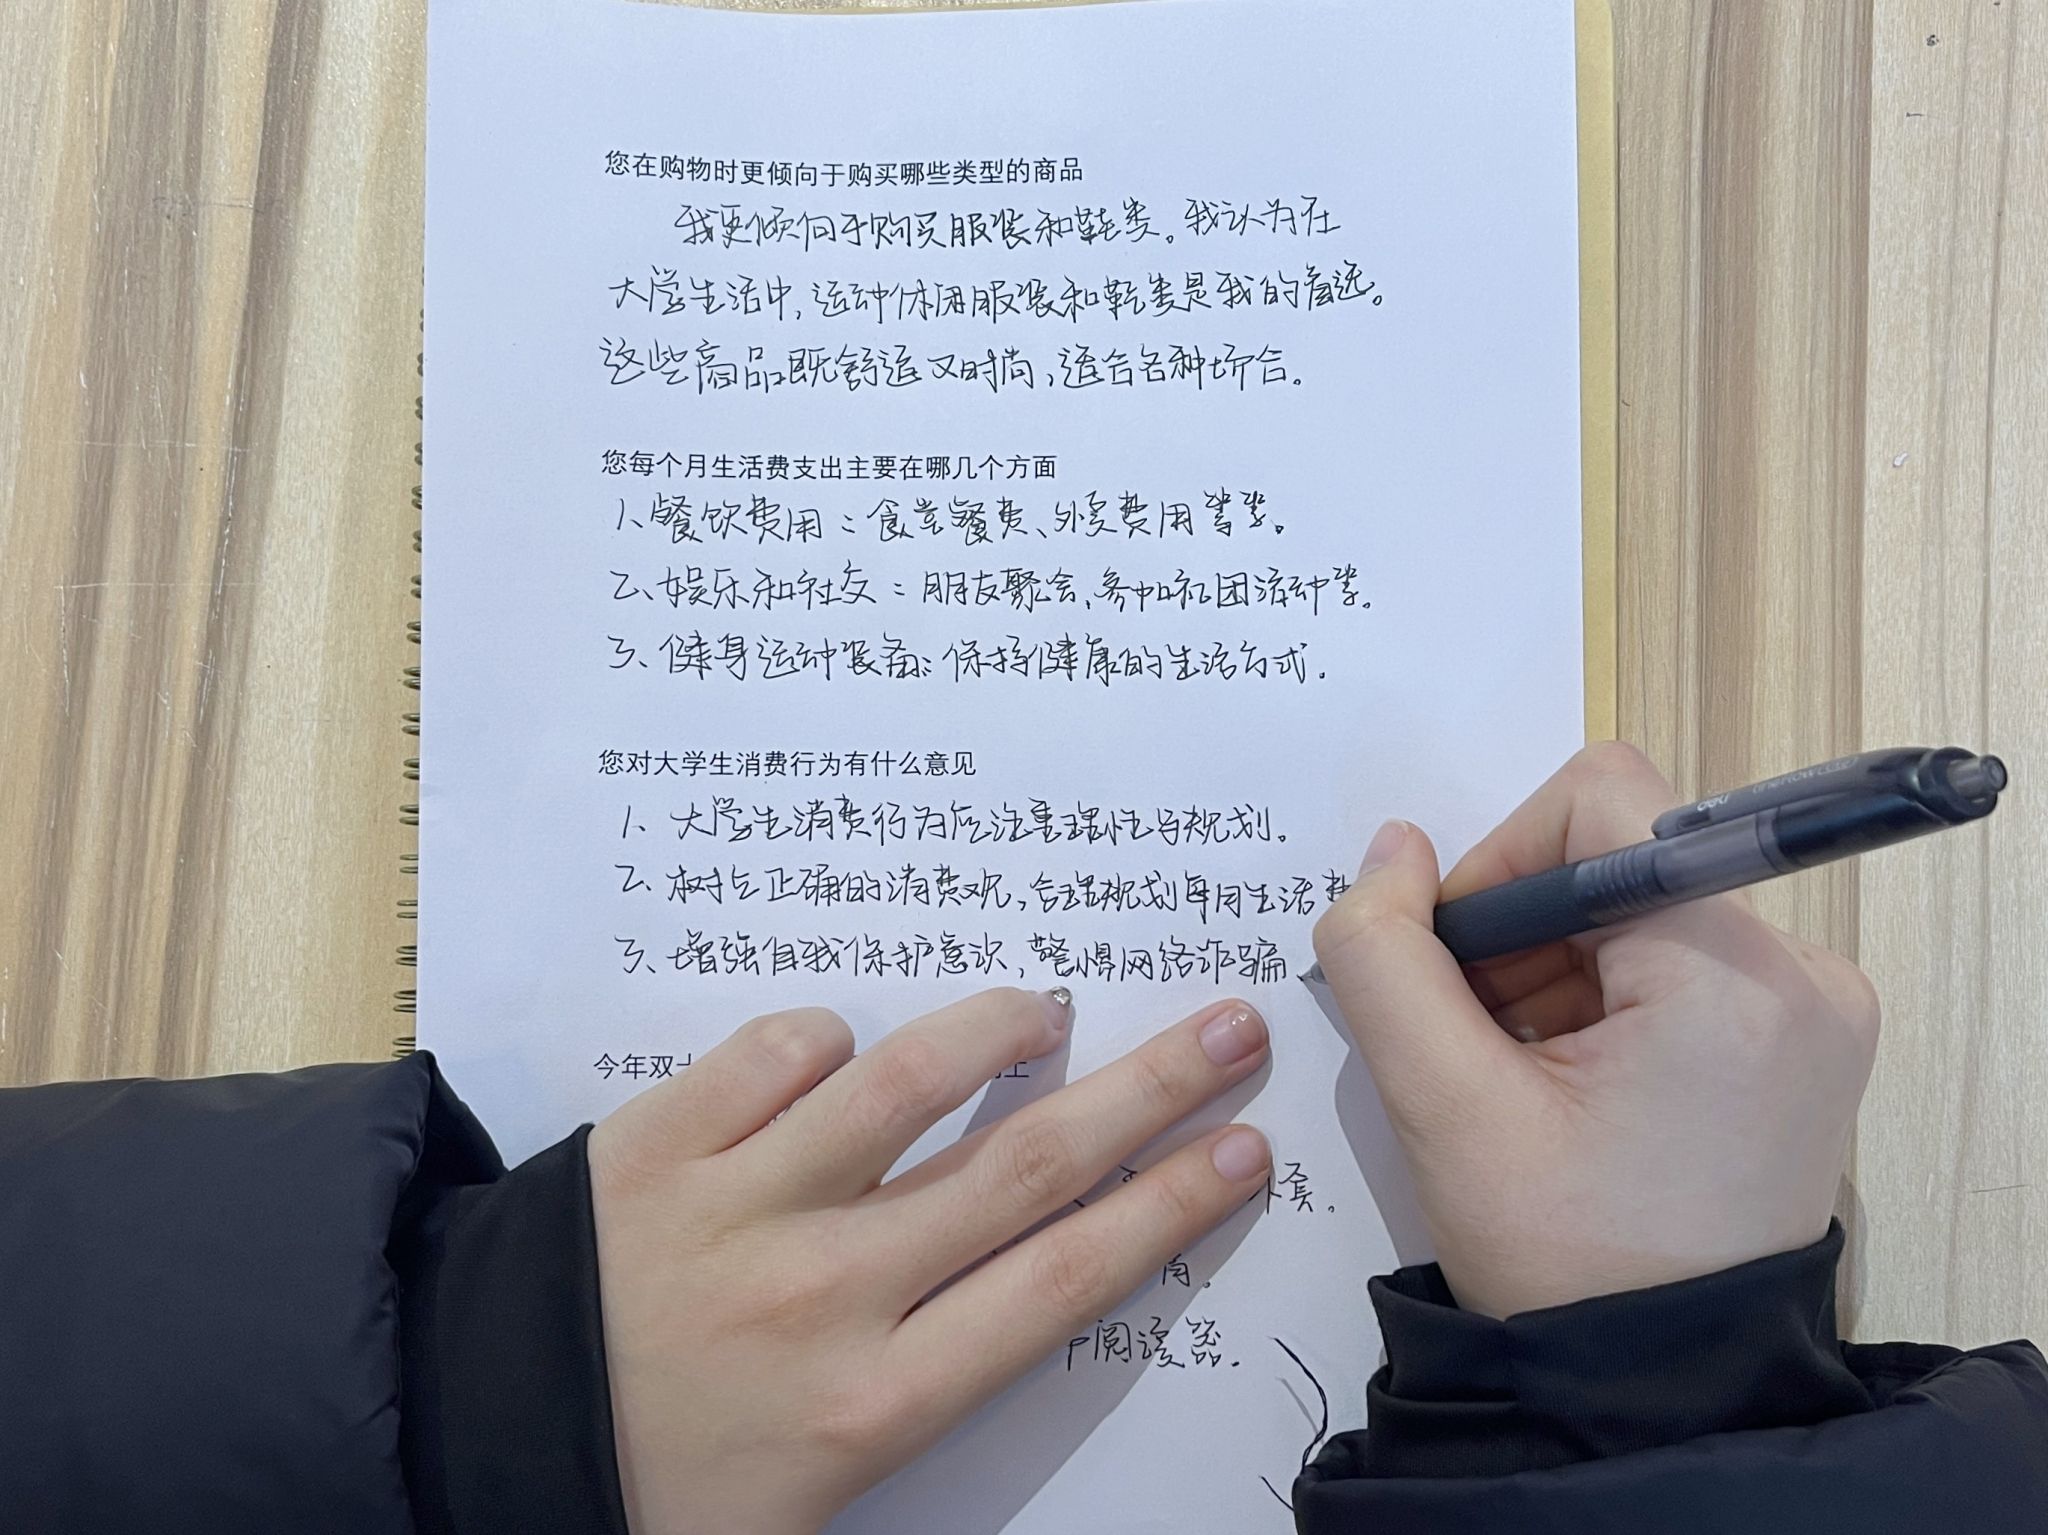 您在购物时更倾向于购买哪些类型的商品
我更倾向于购买服装和鞋类。我认为在
大学生活中,运动休闲服装和鞋类是我的首选。
这些商品既舒适又时尚,适合各种场合。
您每个月生活费支出主要在哪几个方面
1、餐饮费用:食堂餐费、外卖费用等等。
2、娱乐和社交:朋友聚会,参加社团活动等。
3、健身运动装备:保持健康的生活方式。
您对大学生消费行为有什么意见
1、大学生消费行为应注重理性与规划。
2、树立正确的消费观,合理规划每月生活费
3、增强自我保护意识,警惕网络诈骗
今年双十
阅读器。
deli